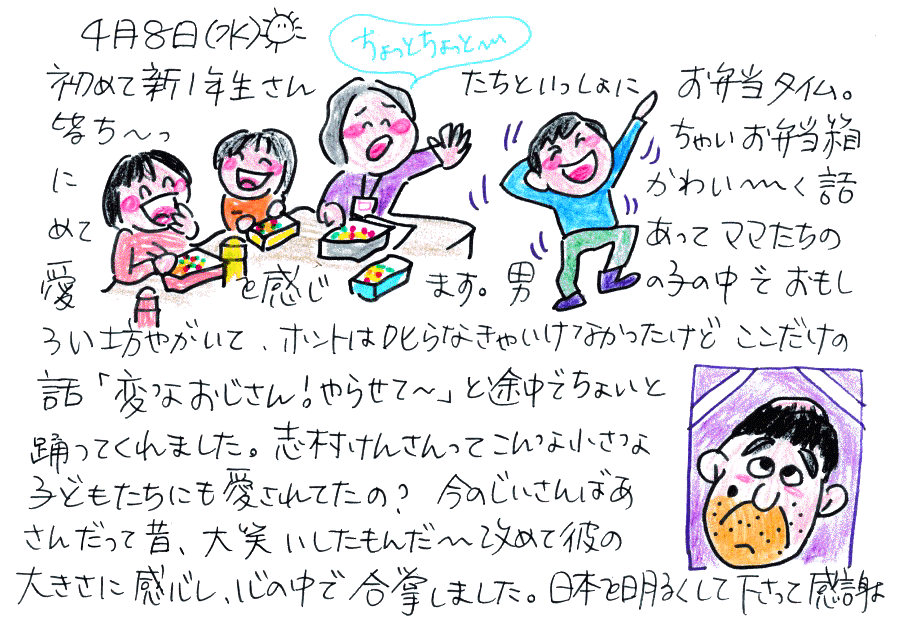 4月8日(水)
ちょっとちょっと〜
初めて新1年生さんたちといっしょにお弁当タイム。
皆ち〜っちゃいお弁当箱
にかわい〜く詰
めてあってママたちの
愛を感じます。男の子の中でおもし
ろい坊やがいて、ホントは叱らなきゃいけなかったけどここだけの
話「変なおじさん!やらせて〜」と途中でちょいと
踊ってくれました。志村けんさんってこんな小さな
子どもたちにも愛されてたの?今のじいさんばあ
さんだって昔、大笑いしたもんだ〜改めて彼の
大きさに感心し、心の中で合掌しました。日本を明るくして下さって感謝よ